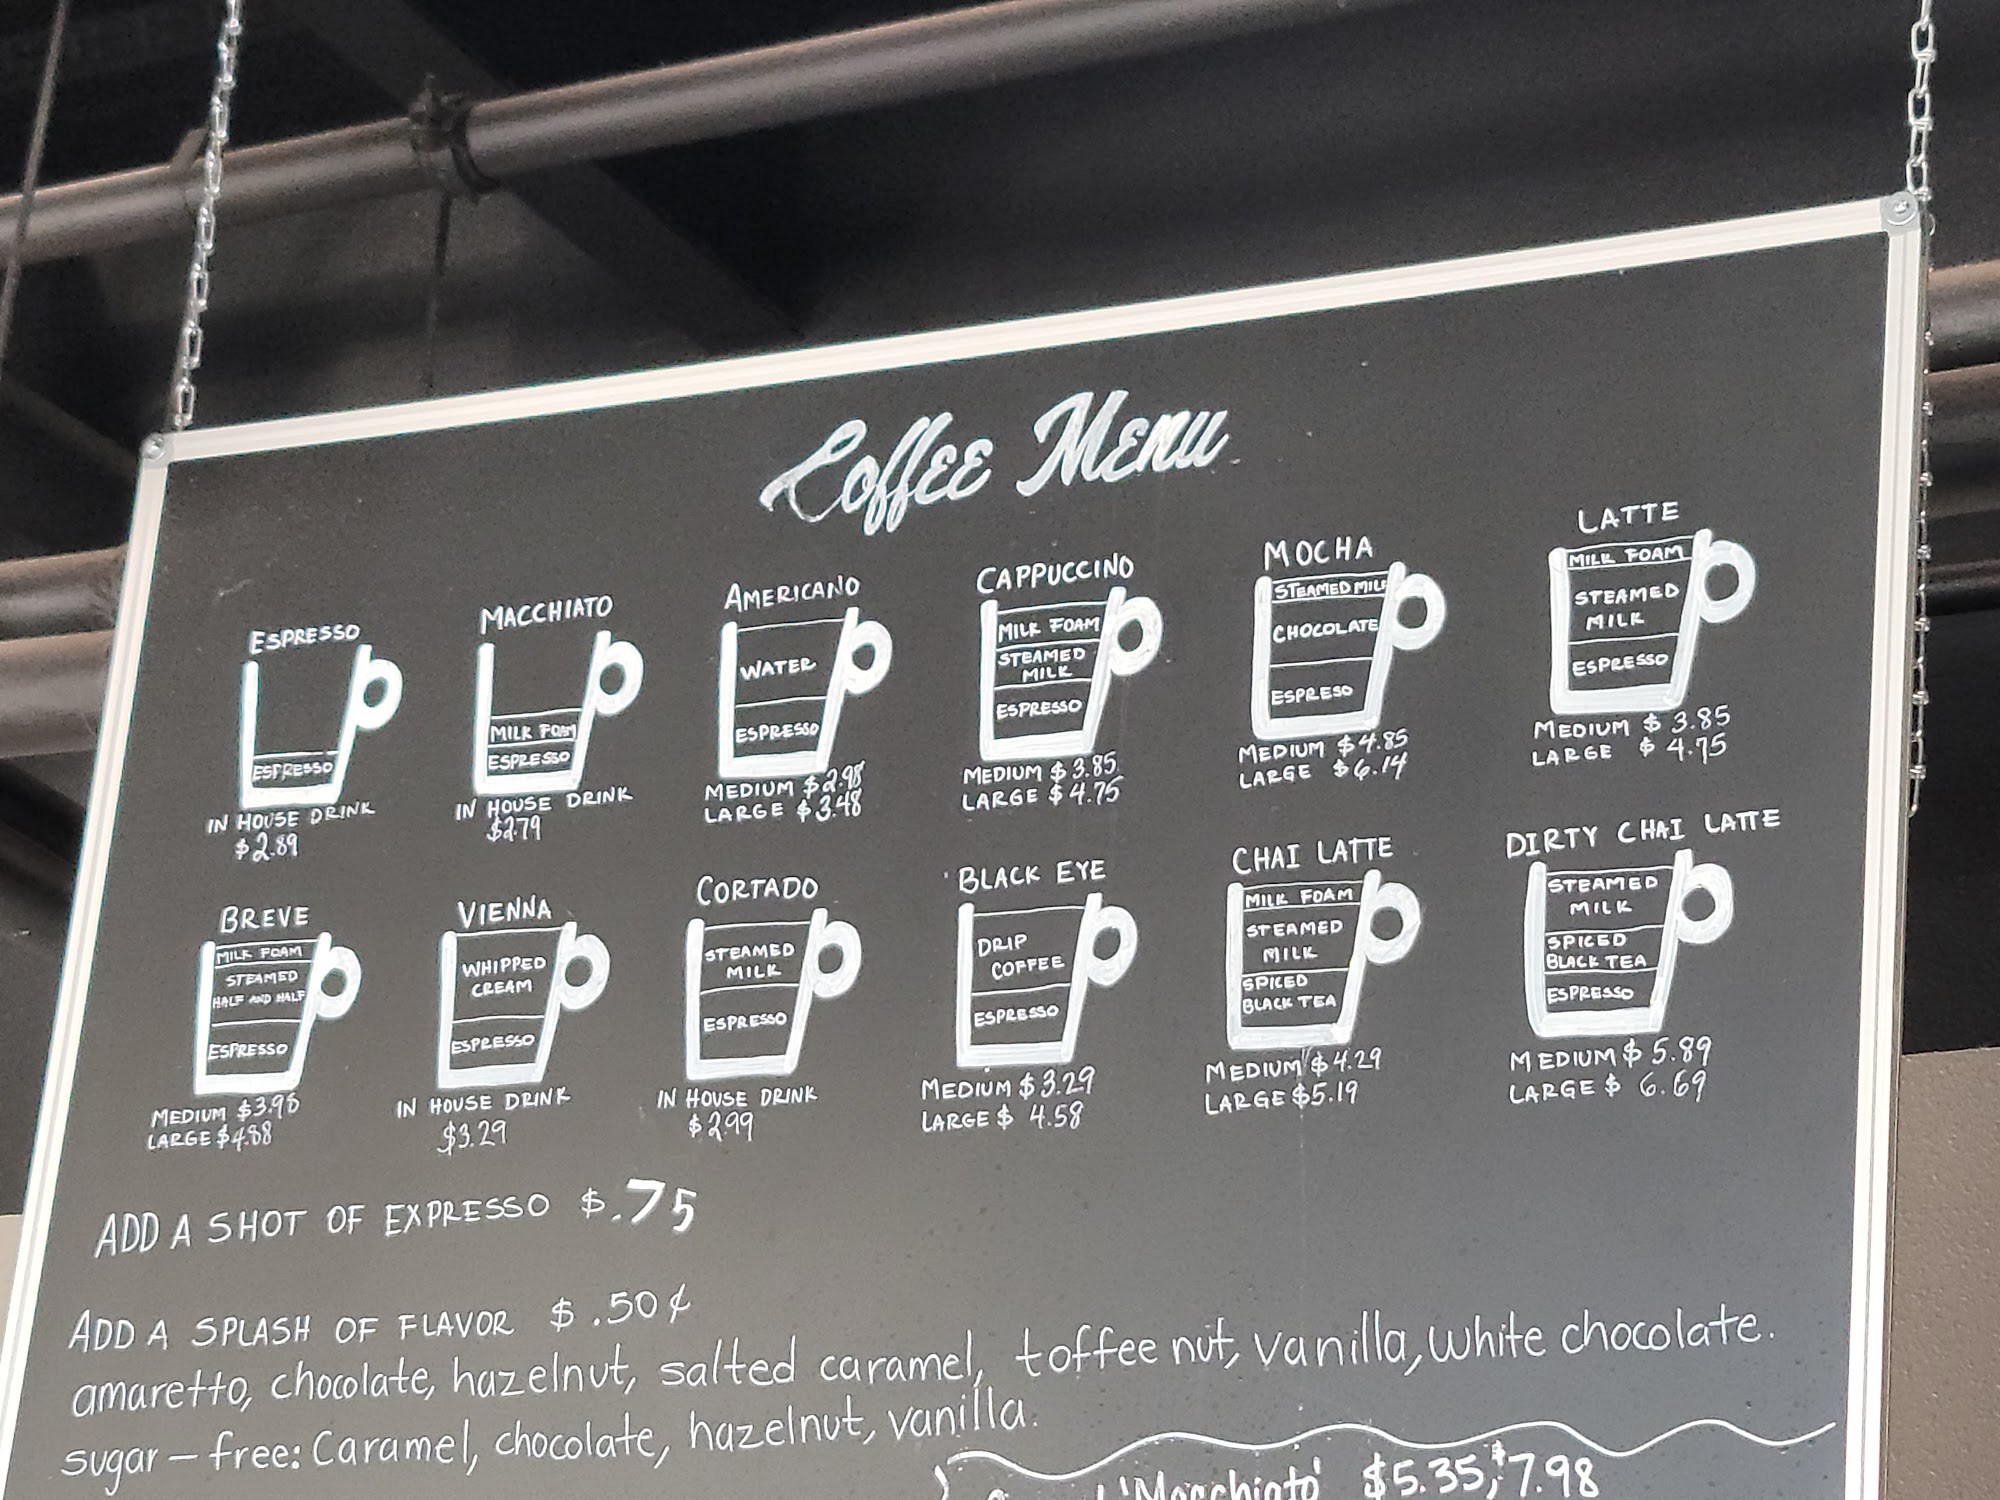 Coffee Menu
ESPRESSO
ESPRESSO
IN HOUSE DRINK
$2.89
MACCHIATO
MILK FOAM
ESPRESSO
IN HOUSE DRINK
$2.79
AMERICANO
WATER
ESPRESSO
MEDIUM $2.98
LARGE $3.48
CAPPUCCINO
MILK FOAM
STEAMED
MILK
ESPRESSO
MEDIUM $3.85
LARGE $4.75
MOCHA
STEAMED MILK
CHOCOLATE
ESPRESO
MEDIUM $4.85
LARGE $6.14
LATTE
MILK FOAM
STEAMED
MILK
ESPRESSO
MEDIUM $3.85
LARGE $4.75
BREVE
MILK FOAM
STEAMED
HALF AND HALF
ESPRESSO
MEDIUM $3.98
LARGE $4.88
VIENNA
WHIPPED
CREAM
ESPRESSO
IN HOUSE DRINK
$3.29
CORTADO
STEAMED
MILK
ESPRESSO
IN HOUSE DRINK
$2.99
BLACK EYE
DRIP
COFFEE
ESPRESSO
MEDIUM $3.29
LARGE $4.58
CHAI LATTE
MILK FOAM
STEAMED
MILK
SPICED
BLACK TEA
MEDIUM $4.29
LARGE $5.19
DIRTY CHAI LATTE
STEAMED
MILK
SPICED
BLACK TEA
ESPRESSO
MEDIUM $5.89
LARGE $6.69
ADD A SHOT OF EXPRESSO $.75
ADD A SPLASH OF FLAVOR $.50¢
amaretto, chocolate, hazelnut, salted caramel, toffee nut, vanilla, white chocolate.
sugar-free: Caramel, chocolate, hazelnut, vanilla.
'Macchiato' $5.35, $7.98